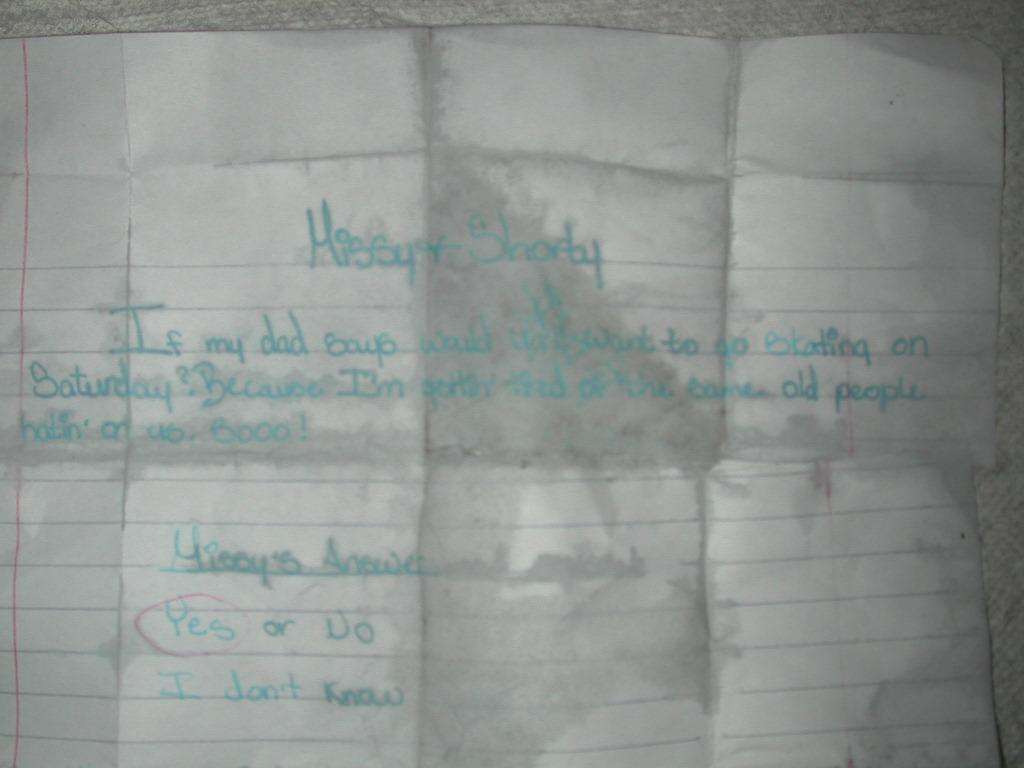 Missy + Shorty
If my dad says would y'all want to go skating on
Saturday? Because I'm gettin' tired of the same old people
hatin' on us. Sooo!
Missy's Answer
Yes or No
I don't know